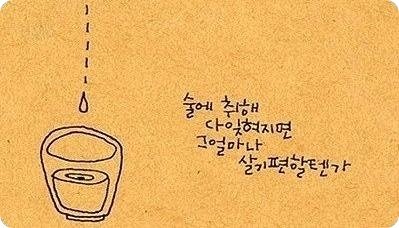 술에 취해
다잊혀지면
그얼마나
살기편할텐가